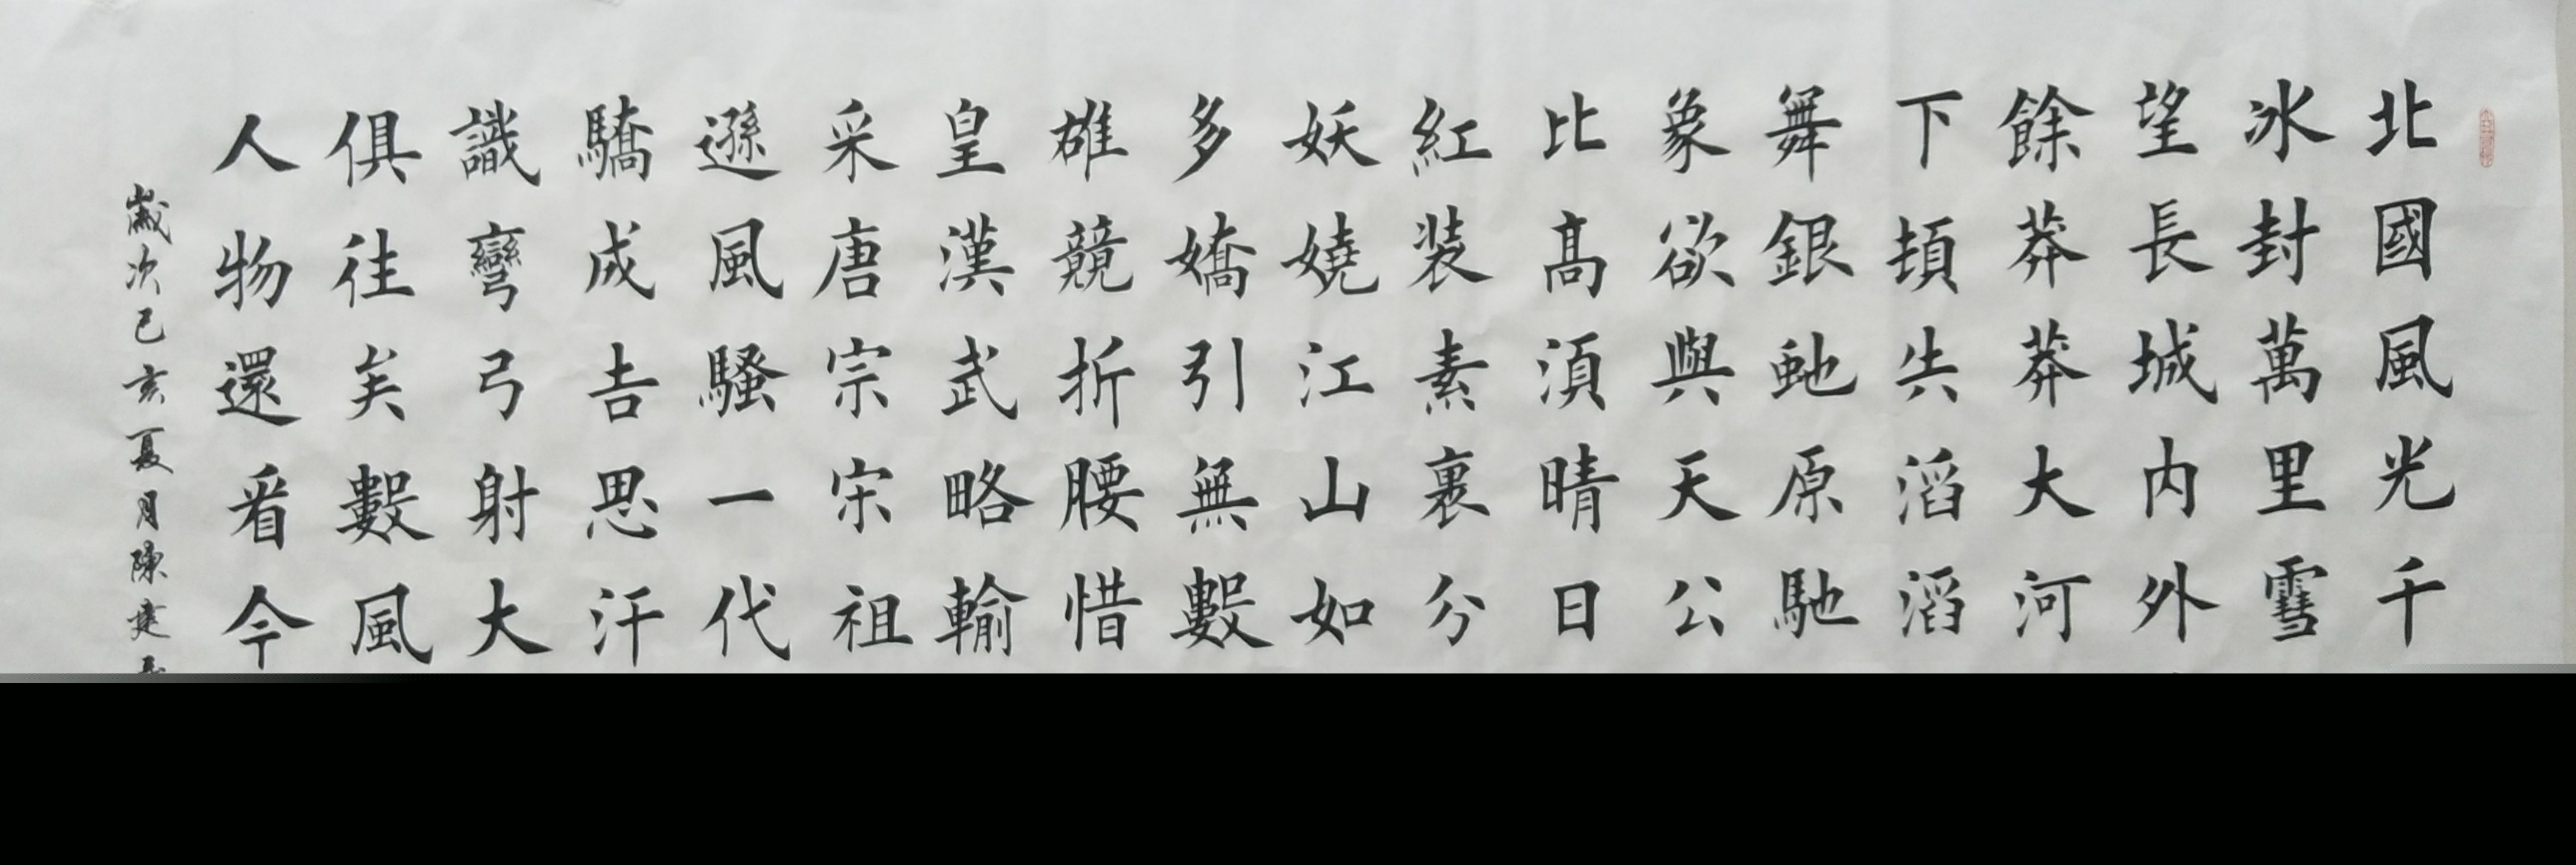 北國風光千
冰封萬里雪
望長城內外
餘莽莽大河
下頓失滔滔
舞銀虵原馳
象欲與天公
比髙須晴日
紅装素裹分
妖嬈江山如
多嬌引無數
雄競折腰惜
皇漢武略輸
采唐宗宋祖
遜風騷一代
驕成吉思汗
識彎弓射大
俱往矣數風
人物還看今
歲次己亥夏月陳建